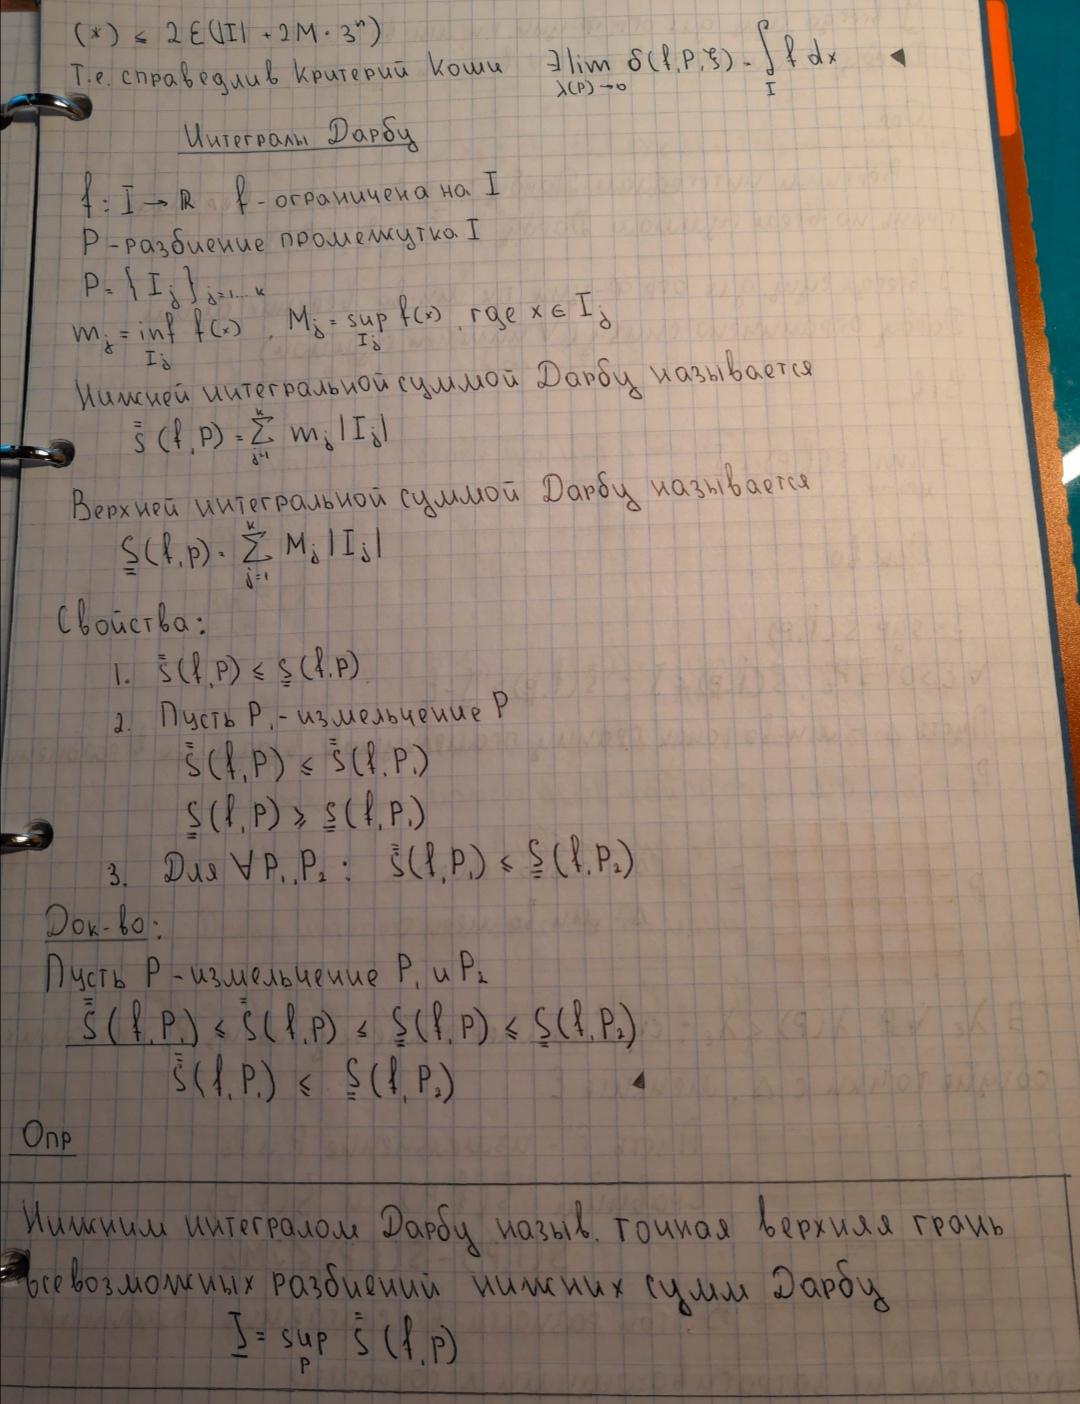 (*) ≤ 2ε(|I| + 2M · 3ⁿ)
Т.е. справедлив Критерий Коши ∃ lim_{λ(P)→0} δ(f, P, ξ) = ∫_I f dx ◄
Интегралы Дарбу
f : I → ℝ f - ограничена на I
P - разбиение промежутка I
P = { I_j }_{j=1...k}
m_j = inf_{I_j} f(x), M_j = sup_{I_j} f(x), где x ∈ I_j
Нижней интегральной суммой Дарбу называется
s̿ (f, P) = Σ_{j=1}^{k} m_j |I_j|
Верхней интегральной суммой Дарбу называется
S̳(f, P) = Σ_{j=1}^{k} M_j |I_j|
Свойства:
1. s̿ (f, P) ≤ S̳(f, P)
2. Пусть P₁ - измельчение P
s̿ (f, P) ≤ s̿ (f, P₁)
S̳(f, P) ≥ S̳(f, P₁)
3. Для ∀ P₁, P₂ : s̿ (f, P₁) ≤ S̳(f, P₂)
Док-во:
Пусть P - измельчение P₁ и P₂
s̿ (f, P₁) ≤ s̿ (f, P) ≤ S̳(f, P) ≤ S̳(f, P₂)
s̿ (f, P₁) ≤ S̳(f, P₂) ◄
Опр
Нижним интегралом Дарбу назыв. точная верхняя грань
всевозможных разбиений нижних сумм Дарбу
I̲ = sup_P s̿ (f, P)